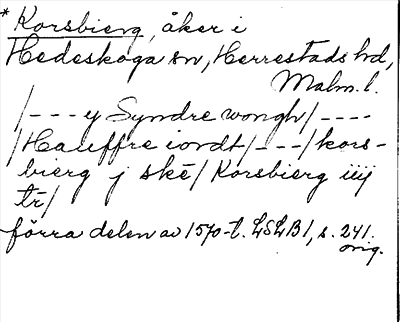 * Korsbierg, åker i
Hedeskoga sn, Herrestads hd,
Malm. l.
/--- y Syndre wongh/----
/Hauffre iordt/---/kors-
bierg j skē/ Korsbierg iiij
tr̄/
förra delen av 1570-t. LSLB1, s. 241.
orig.